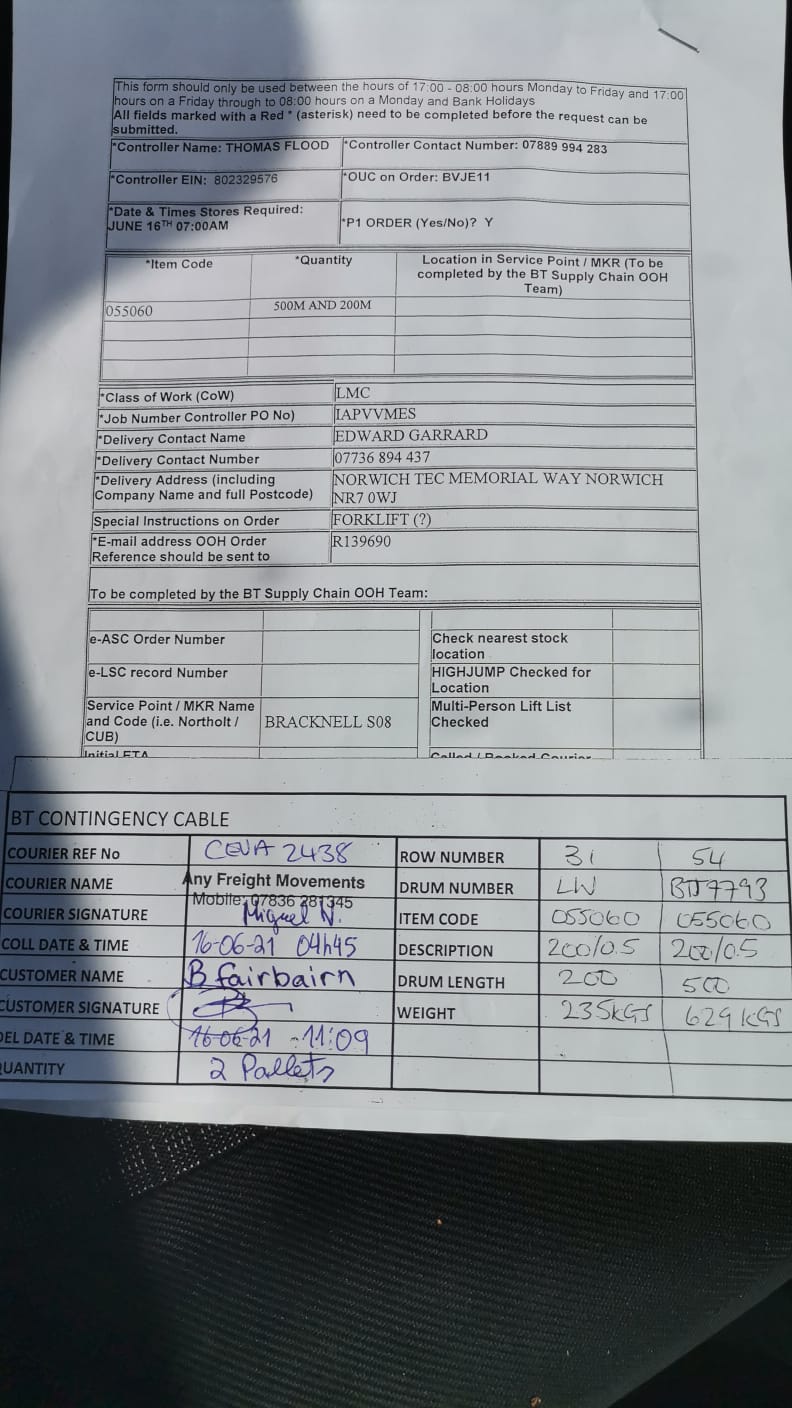 This form should only be used between the hours of 17:00 - 08:00 hours Monday to Friday and 17:00
hours on a Friday through to 08:00 hours on a Monday and Bank Holidays
All fields marked with a Red * (asterisk) need to be completed before the request can be
submitted.
*Controller Name: THOMAS FLOOD *Controller Contact Number: 07889 994 283
*Controller EIN: 802329576 *OUC on Order: BVJE11
*Date & Times Stores Required:
JUNE 16TH 07:00AM *P1 ORDER (Yes/No)? Y
*Item Code *Quantity Location in Service Point / MKR (To be
completed by the BT Supply Chain OOH
Team)
055060 500M AND 200M
*Class of Work (CoW) LMC
*Job Number Controller PO No) IAPVVMES
*Delivery Contact Name EDWARD GARRARD
*Delivery Contact Number 07736 894 437
*Delivery Address (including NORWICH TEC MEMORIAL WAY NORWICH
Company Name and full Postcode) NR7 0WJ
Special Instructions on Order FORKLIFT (?)
*E-mail address OOH Order R139690
Reference should be sent to
To be completed by the BT Supply Chain OOH Team:
e-ASC Order Number Check nearest stock
location
e-LSC record Number HIGHJUMP Checked for
Location
Service Point / MKR Name Multi-Person Lift List
and Code (i.e. Northolt / BRACKNELL S08 Checked
CUB)
Initial ETA Called / Booked Courier
BT CONTINGENCY CABLE
COURIER REF No CEVA 2438 ROW NUMBER 31 54
COURIER NAME Any Freight Movements DRUM NUMBER LW
Mobile: 07836 281345
COURIER SIGNATURE Miguel N. ITEM CODE 055060 055060
COLL DATE & TIME 16-06-21 04h45 DESCRIPTION 200/0.5 200/0.5
CUSTOMER NAME B fairbairn DRUM LENGTH 200 500
CUSTOMER SIGNATURE WEIGHT 235KGS 629KGS
DEL DATE & TIME 16-06-21 - 11:09
QUANTITY 2 Pallets